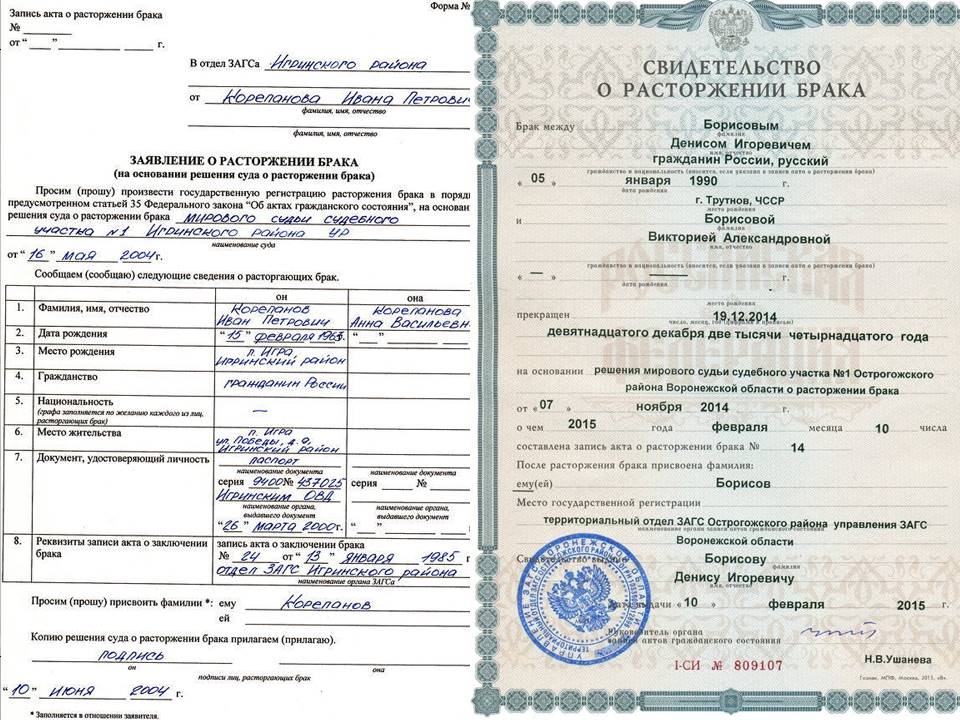 Форма №
Запись акта о расторжении брака
№
от “ ” г.
В отдел ЗАГСа Игринского района
от Корепанова Ивана Петрович
фамилия, имя, отчество
фамилия, имя, отчество
ЗАЯВЛЕНИЕ О РАСТОРЖЕНИИ БРАКА
(на основании решения суда о расторжении брака)
Просим (прошу) произвести государственную регистрацию расторжения брака в поряд
предусмотренном статьей 35 Федерального закона “Об актах гражданского состояния”, на основан
решения суда о расторжении брака мирового судьи судебного
участка №1 Игринского района УР
наименование суда
от “16” мая 2004г.
Сообщаем (сообщаю) следующие сведения о расторгающих брак.
он она
1. Фамилия, имя, отчество Корепанов Иван Петрович Корепанова Анна Васильевн
2. Дата рождения “15” февраля 1963г. “ ”
3. Место рождения п. Игра
4. Гражданство гражданин России
5. Национальность —
(графа заполняется по желанию каждого из лиц,
расторгающих брак)
6. Место жительства п. Игра
ул. Победы, д. 9,
Игринский район
7. Документ, удостоверяющий личность паспорт
наименование документа наименование документа
серия 9400 № 437025 серия №
Игринским ОВД
наименование органа, наименование органа,
выдавшего документ выдавшего документ
“26” марта 2000г. “ ”
8. Реквизиты записи акта о заключении
брака
запись акта о заключении брака
№ 24 от “13” января 1985 г.
отдел ЗАГС Игринского района
наименование органа ЗАГСа
Просим (прошу) присвоить фамилии *: ему Корепанов
ей
Копию решения суда о расторжении брака прилагаем (прилагаю).
подпись
он она
подписи лиц, расторгающих брак
“10” июня 2004 г.
* Заполняется в отношении заявителя.
СВИДЕТЕЛЬСТВО
О РАСТОРЖЕНИИ БРАКА
Брак между Борисовым
фамилия
Денисом Игоревичем
имя, отчество
гражданин России, русский
гражданство и национальность (вносится, если указана в записи акта о расторжении брака)
« 05 » января 1990
дата рождения
г. Трутнов, ЧССР
место рождения
и Борисовой
фамилия
Викторией Александровной
имя, отчество
гражданство и национальность (вносится, если указана в записи акта о расторжении брака)
« — » —
дата рождения
место рождения
прекращен 19.12.2014
число, месяц, год (цифрами и прописью)
девятнадцатого декабря две тысячи четырнадцатого года
на основании решения мирового судьи судебного участка №1 Острогожского
района Воронежской области о расторжении брака
от « 07 » ноября 2014 г.
о чем 2015 года февраля месяца 10 числа
составлена запись акта о расторжении брака № 14
После расторжения брака присвоена фамилия:
ему(ей) Борисов
Место государственной регистрации
территориальный отдел ЗАГС Острогожского района управления ЗАГС
наименование органа записи актов гражданского состояния
Воронежской области
Свидетельство выдано Борисову
фамилия
Денису Игоревичу
имя, отчество
Дата выдачи « 10 » февраля 2015 г.
Руководитель органа
записи актов гражданского состояния
Н.В.Ушанева
I-СИ № 809107
Гознак, МПФ, Москва, 2013, «В».